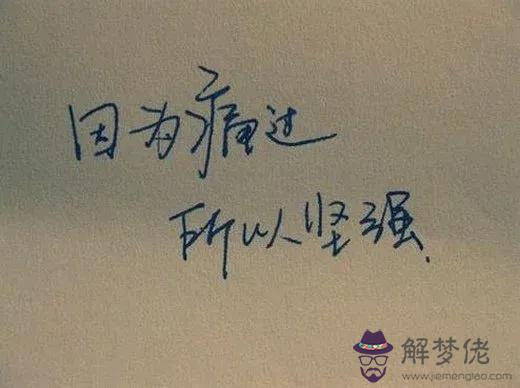 因为痛过
所以坚强.
解梦佬
www.jiemenglao.com